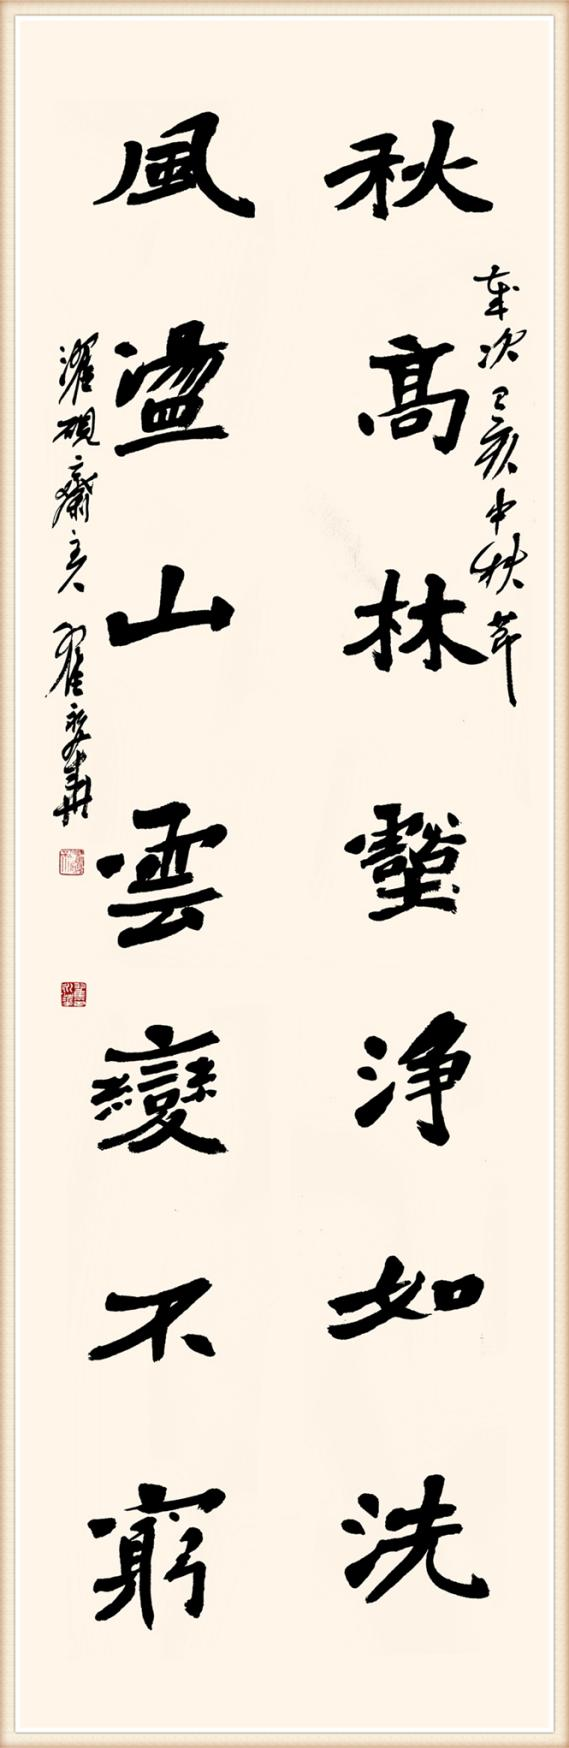 秋高林壑淨如洗
風盪山雲變不窮
歲次己亥中秋節
濯硯齋主人翟